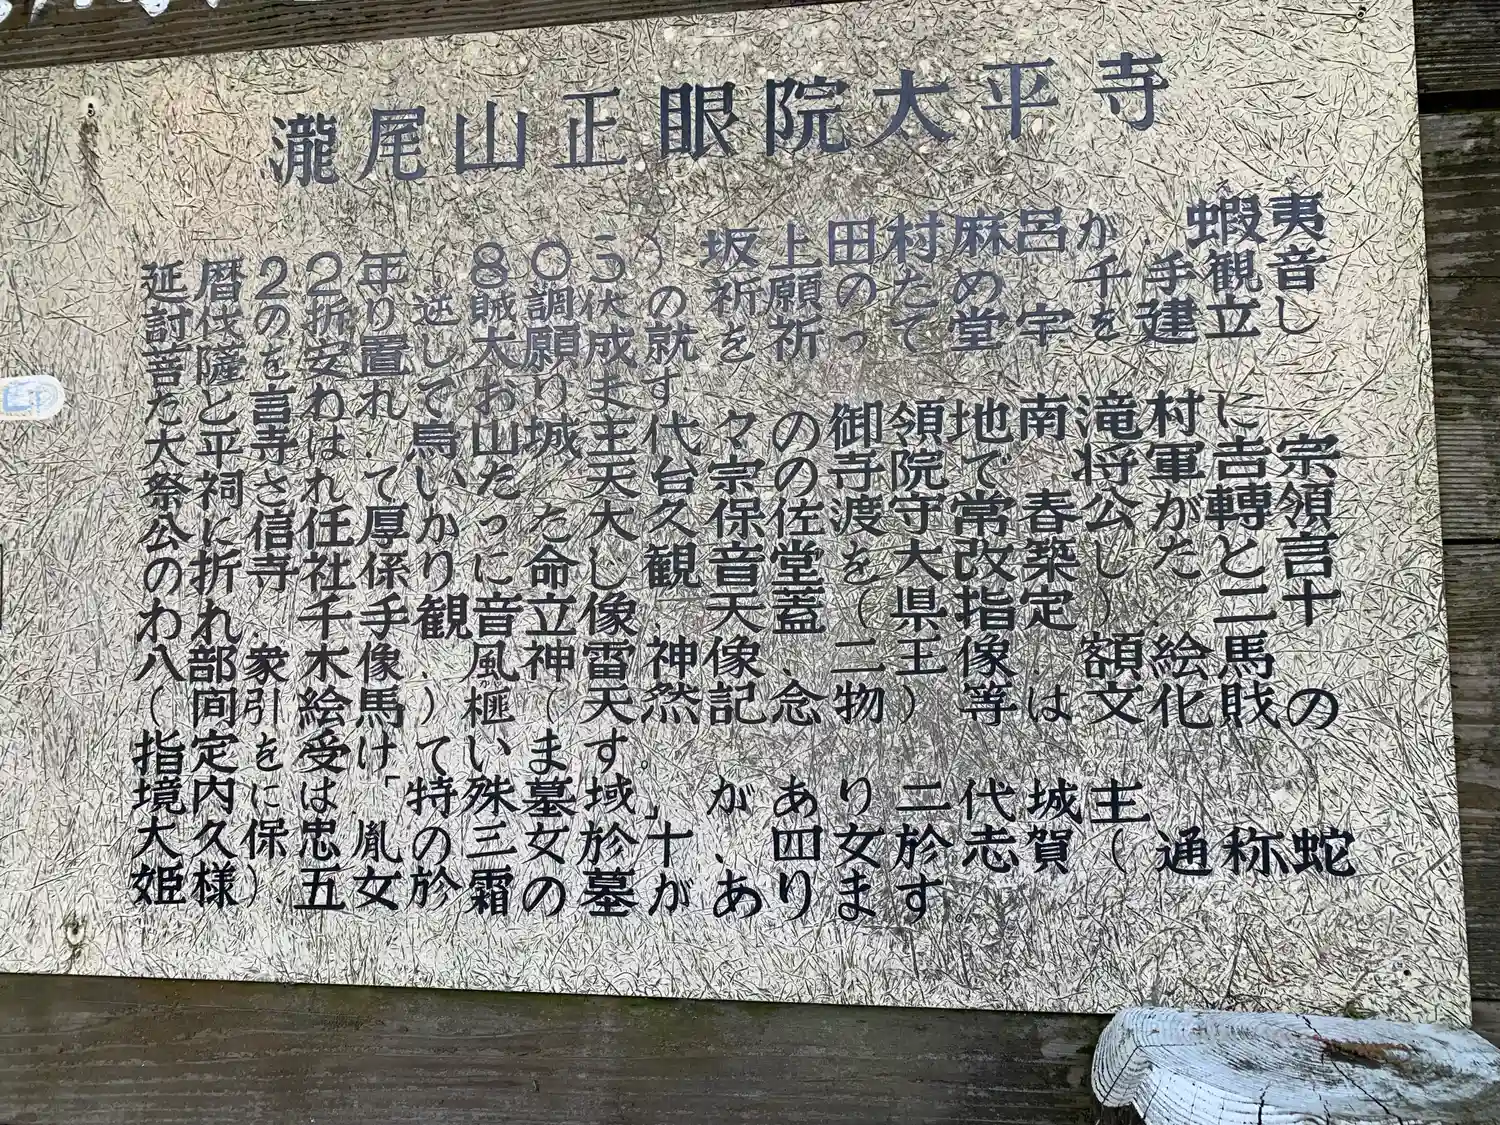 瀧尾山正眼院太平寺
延暦22年(803)坂上田村麻呂が蝦夷
討伐の折り逆賊調伏の祈願のため、千手観音
菩薩を安置して大願成就を祈って堂宇を建立し
たと言われております。
大平寺は、烏山城主代々の御領地南滝村に
祭祠されていた、天台宗の寺院で、将軍吉宗
公に信任厚かった大久保佐渡守常春公が轉領
の折寺社係りに命し観音堂を大改築したと言
われ、千手観音立像、天蓋(県指定)、二十
八部衆木像、風神雷神像、二王像、額絵馬の
(間引絵馬)榧(天然記念物)等は文化財
指定を受けています。
境内には「特殊墓域」があり二代城主
大久保忠胤の三女於十、四女於志賀(通称蛇
姫様)五女於霜の墓があります。